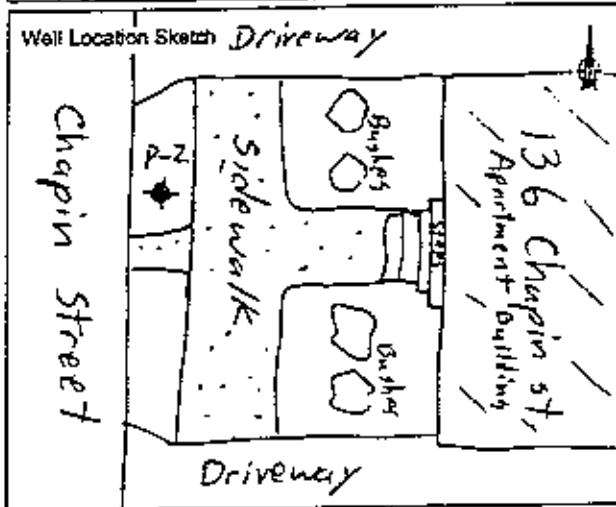 Well Location Sketch
Driveway
Chapin Street
P-2
Sidewalk
Bushes
Steps
136 Chapin St,
Apartment Building
Bushes
Driveway